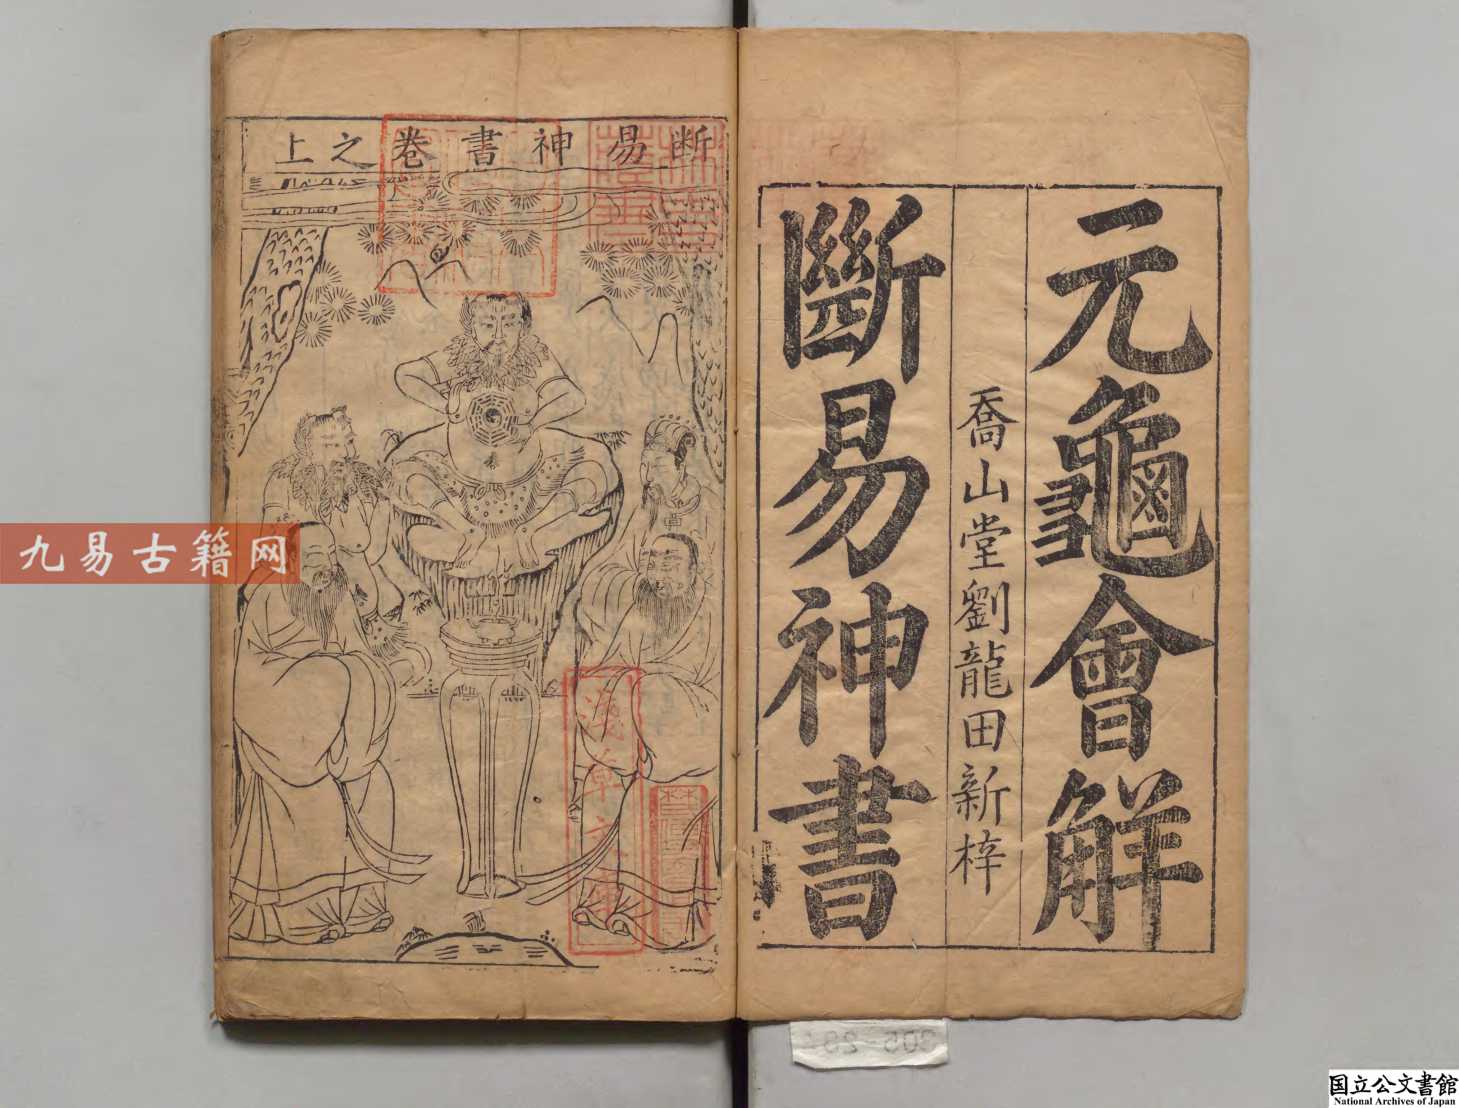 元龜會解
喬山堂劉龍田新梓
斷易神書
断易神書卷之上
淺草文庫
九易古籍网
905-294
国立公文書館
National Archives of Japan